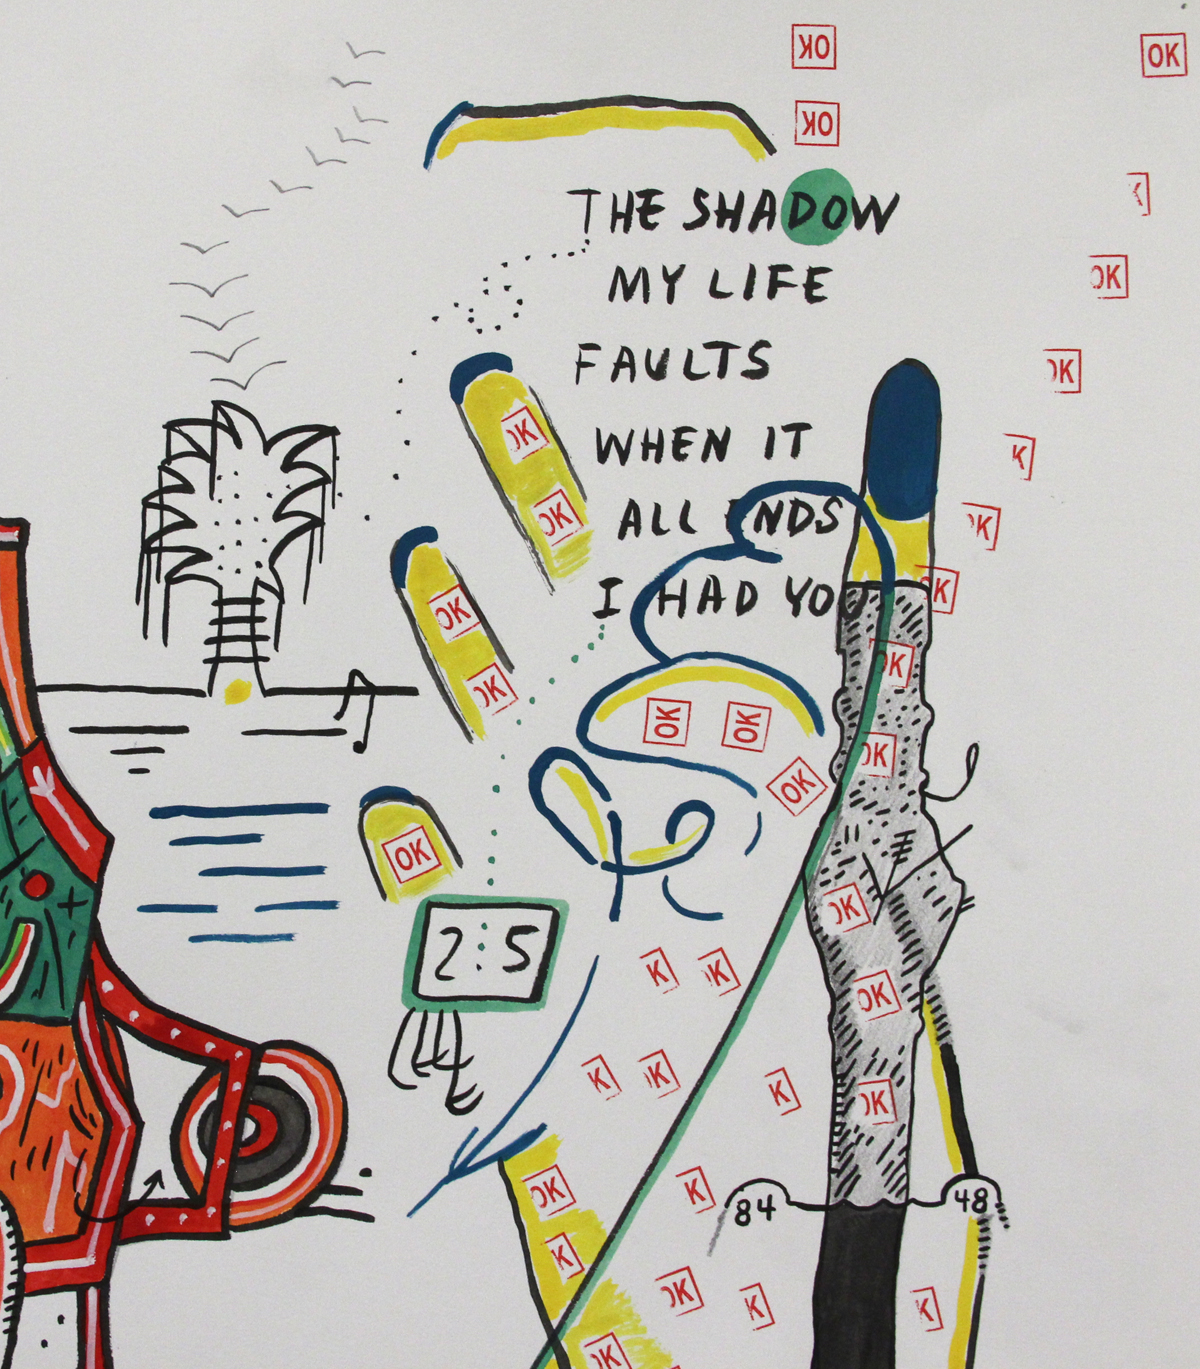 OK
OK
OK
THE SHADOW
K
MY LIFE
OK
FAULTS
OK
OK
WHEN IT
K
OK
ALL ENDS
OK
I HAD YOU
OK
OK
OK
OK
OK
OK
OK
OK
OK
OK
2:5
K
K
OK
K
K
K
OK
OK
K
84
48
K
OK
K
K
OK